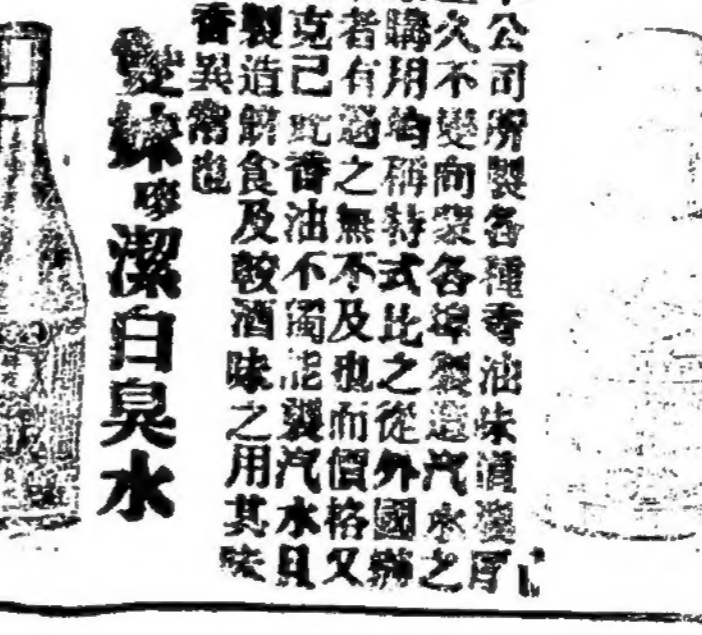 公司所製各種香油味道濃厚
久不變向蒙各埠製造汽水之
購用均稱特式比之從外國辦
者有過之無不及也而價格又
克己此香油不獨能製汽水且
製造餅食及較酒味之用其味
香異常也
潔白臭水